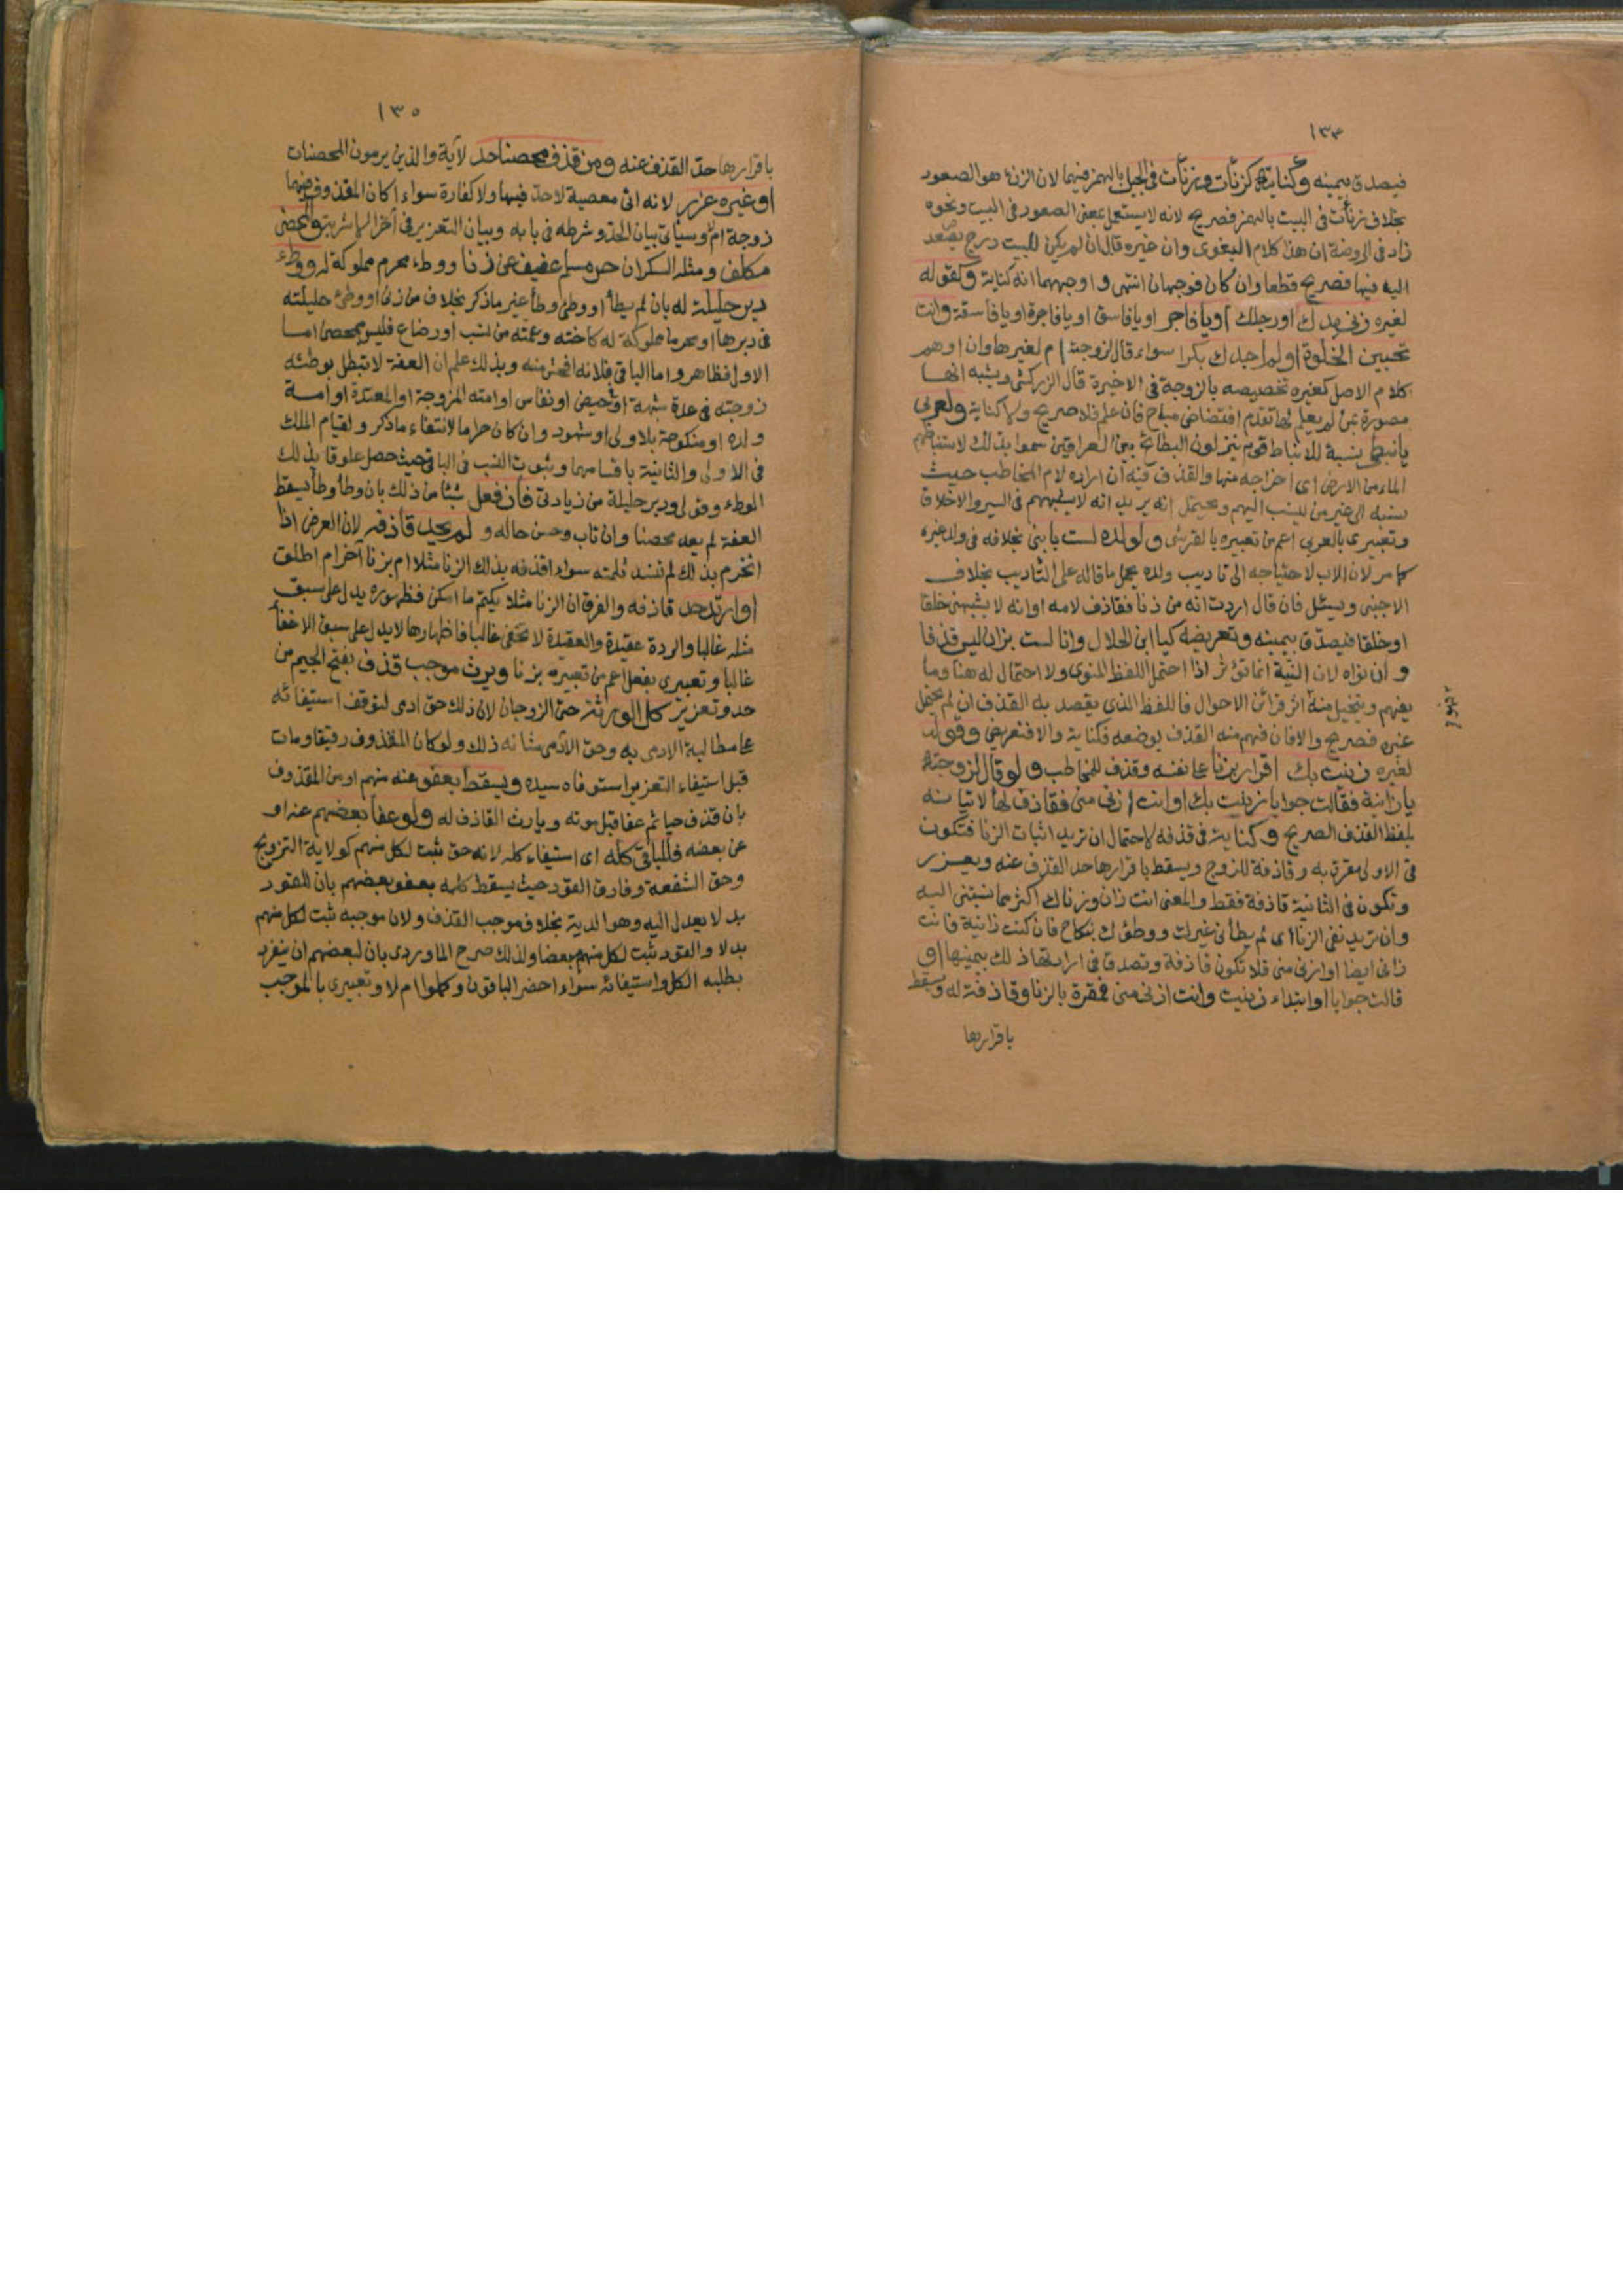 ١٣٤
فيصدق بيمينه وكنايته كزنأت وزنأت في الجبل بالهمز فيهما لان الزنء هو الصعود
بخلاف زنأت في البيت بالهمز فصريح لانه لا يستعمل بمعنى الصعود في البيت ونحوه
زاد في الروضة ان هذا كلام البغوى وان غيره قال ان لم يكن للبيت درج يصعد
اليه فيها فصريح قطعا وان كان فوجهان انتهى و اوجههما انه كناية وكقوله
لغيره زنى يدك او رجلك او يا فاجر او يا فاسق او يا فاجرة او يا فاسقة وانت
تحبين الخلوة او لم اجدك بكرا سواء قال لزوجته ام لغيرها وان اوهم
كلام الاصل كغيره تخصيصه بالزوجة في الاخيرة قال الزركشى ويشبه انها
مصورة بمن لم يعلم لها تقدم افتضاض مباح فان علم فلا صريح ولا كناية ولعربي
يا نبطى نسبة للانباط قوم ينزلون البطائح بين العراقين سموا بذلك لاستنباطهم
الماء من الارض اى اخراجه منها والقذف فيه ان اراده لام المخاطب حيث
نسبه الى غير من ينسب اليهم ويحتمل انه يريد انه لا يشبههم في السير والاخلاق
وتعبيرى بالعربى اعم من تعبيره بالقرشى ولولده لست بابنى بخلافه في ولد غيره
كما مر لان الاب لاحتياجه الى تاديب ولده يحمل ما قاله على التاديب بخلاف
الاجنبى ويسئل فان قال اردت انه من زنا فقاذف لامه او انه لا يشبهنى خلقا
او خلقا فيصدق بيمينه وتعريضه كيا ابن الحلال وانا لست بزان ليس قذفا
و ان نواه لان النية انما تؤثر اذا احتمل اللفظ المنوى ولا احتمال له هنا وما
يفهم ويتخيل منه اثر قرائن الاحوال فاللفظ الذى يقصد به القذف ان لم يحتمل
غيره فصريح والا فان فهم منه القذف بوضعه فكناية والا فتعريض وقوله
لغيره زنيت بك اقرار بزنا على نفسه وقذف للمخاطب ولو قال لزوجته
يا زانية فقالت جوابا زنيت بك او انت ازنى منى فقاذف لها لاتيانه
بلفظ القذف الصريح وكناية في قذفه لاحتمال ان تريد اثبات الزنا فتكون
في الاولى مقرة به وقاذفة للزوج ويسقط باقرارها حد القذف عنه ويعزر
وتكون في الثانية قاذفة فقط والمعنى انت زان وزناك اكثر مما نسبتنى اليه
وان تريد نفى الزنا اى لم يطأنى غيرك ووطؤك بنكاح فان كنت زانية فانت
زانى ايضا او ازنى منى فلا تكون قاذفة وتصدق في ارادتها ذلك بيمينها او
قالت جوابا او ابتداء زنيت وانت ازنى منى فمقرة بالزنا وقاذفة له ويسقط
باقرارها
١٣٥
باقرارها حد القذف عنه ومن قذف محصنا حد لآية والذين يرمون المحصنات
او غيره عزر لانه اتى معصية لا حد فيها ولا كفارة سواء اكان المقذوف فيهما
زوجة ام لا وسيأتى بيان الحد وشرطه في بابه وبيان التعزير في آخر الاشربة والمحصن
مكلف ومثله السكران حر مسلم عفيف عن زنا ووطء محرم مملوكة له ووطء
دبر حليلة له بان لم يطأ او وطئ وطأ غير ما ذكر بخلاف من زنى او وطئ حليلته
في دبرها او محرما مملوكة له كاخته وعمته من نسب او رضاع فليس بمحصن اما
الاول فظاهر واما الباقى فلانه افحش منه وبذلك علم ان العفة لا تبطل بوطئه
زوجته في عدة شبهة او حيض او نفاس او امته المزوجة او المعتدة او امة
ولده او منكوحة بلا ولى او شهود وان كان حراما لانتفاء ما ذكر ولقيام الملك
في الاولى والثانية باقسامهما وثبوت النسب في الباقى حيث حصل علوق بذلك
الوطء وقولى ودبر حليلة من زيادتى فان فعل شيئا من ذلك بان وطأ وطأ يسقط
العفة لم يعد محصنا وان تاب وحسن حاله و لم يحد قاذفه لان العرض اذا
انخرم بذلك لم تنسد ثلمته سواء اقذفه بذلك الزنا مثلا ام بزنا آخر ام اطلق
او ارتد حد قاذفه والفرق ان الزنا مثلا يكتم ما امكن فظهوره يدل على سبق
مثله غالبا والردة عقيدة والعقيدة لا تخفى غالبا فاظهارها لا يدل على سبق الاخفاء
غالبا وتعبيرى بفعل اعم من تعبيره بزنا ويرث موجب قذف بفتح الجيم من
حد وتعزير كل الورثة حتى الزوجان لان ذلك حق ادمى لتوقف استيفائه
على مطالبة الادمى به وحق الآدمى شانه ذلك ولو كان المقذوف رقيقا ومات
قبل استيفاء التعزير استوفاه سيده ويسقط بعفو عنه منهم او من المقذوف
بان قذف حيا ثم عفا قبل موته وبارث القاذف له ولو عفا بعضهم عنه او
عن بعضه فللباقى كله اى استيفاء كله لانه حق ثبت لكل منهم كولاية التزويج
وحق الشفعة وفارق القود حيث يسقط كله بعفو بعضهم بان للقود
بدلا يعدل اليه وهو الدية بخلاف موجب القذف ولان موجبه ثبت لكل منهم
بدلا والقود ثبت لكل منهم بعضا ولذلك صرح الماوردى بان لبعضهم ان ينفرد
بطلبه الكل واستيفائه سواء احضر الباقون وكملوا ام لا وتعبيرى بالموجب